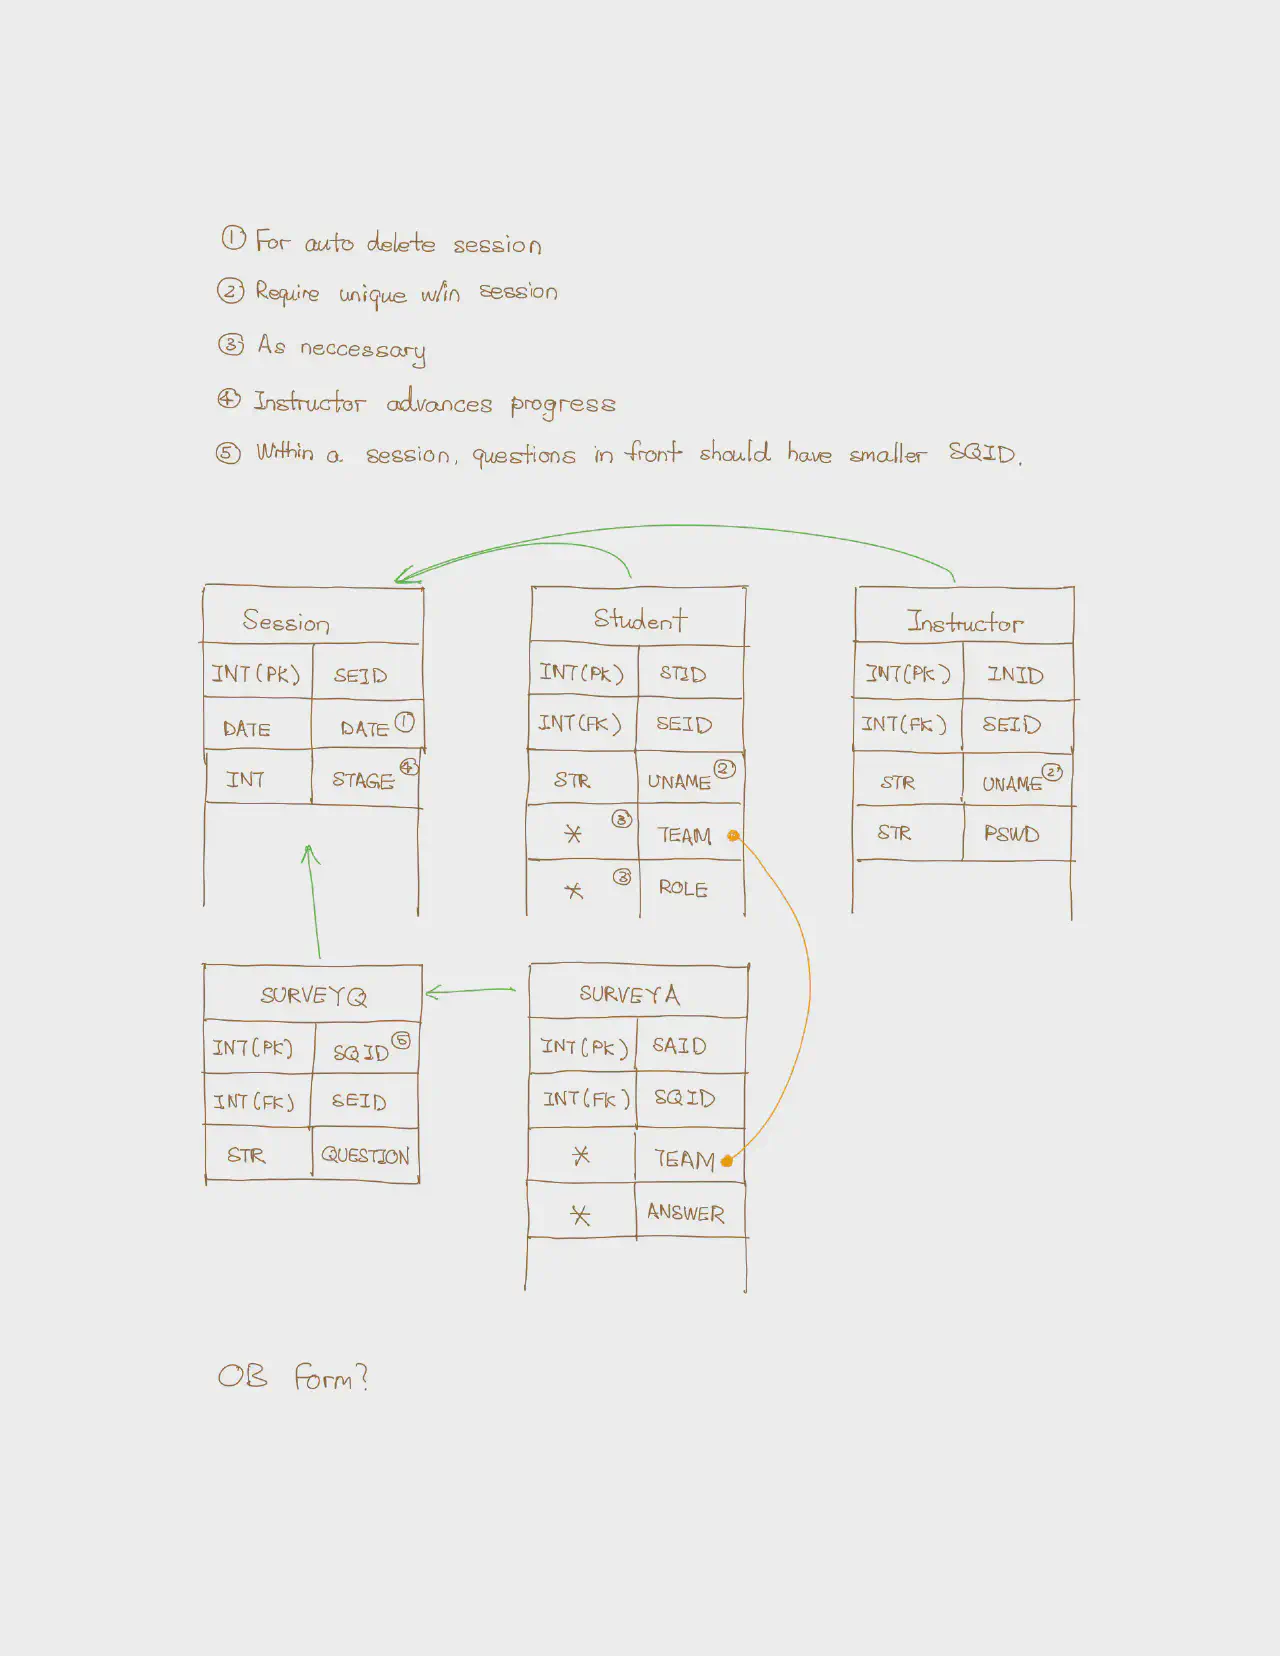 ① For auto delete session
② Require unique w/in session
③ As neccessary
④ Instructor advances progress
⑤ Within a session, questions in front should have smaller SQID.
Session
INT(PK) SEID
DATE DATE ①
INT STAGE ④
Student
INT(PK) STID
INT(FK) SEID
STR UNAME ②
* ③ TEAM
* ③ ROLE
Instructor
INT(PK) INID
INT(FK) SEID
STR UNAME ②
STR PSWD
SURVEYQ
INT(PK) SQID ⑤
INT(FK) SEID
STR QUESTION
SURVEYA
INT(PK) SAID
INT(FK) SQID
* TEAM
* ANSWER
OB Form?